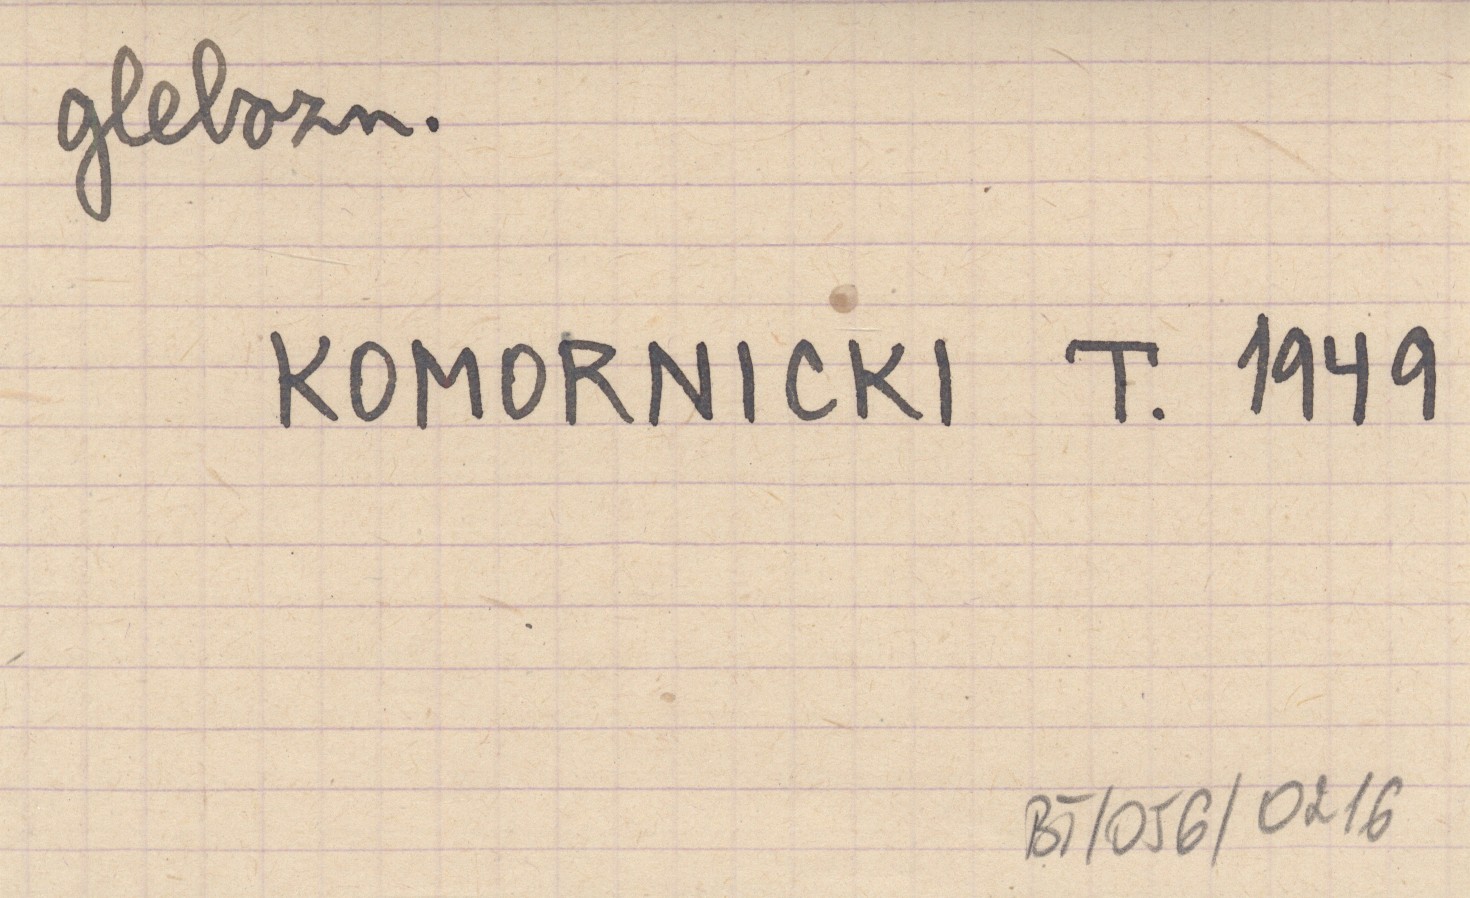 glebozn.
KOMORNICKI T. 1949
BT/056/0216